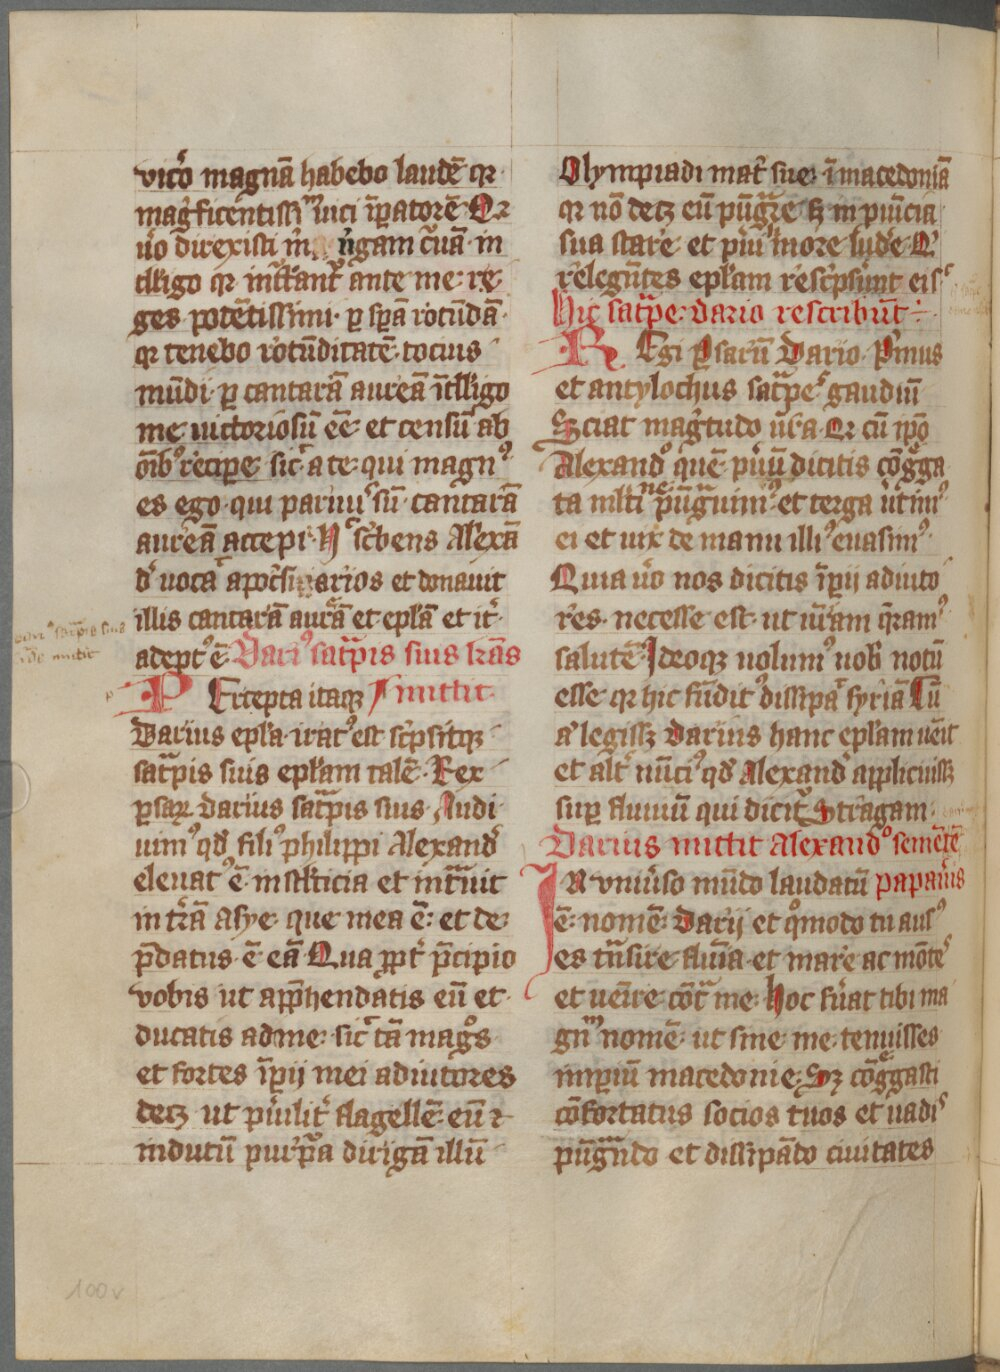 vic̓o magnā habebo laudē qr
mag̓ficentissim̄ uici īpatorē Qr
u̓o direxisti m̓ u̓gam c̄uā in
tll̓igo qr inst̄ant᷑ ante me re
ges potētissimi ꝑ spā rotūdā
qr tenebo rotūditatē tocius
mūdi ꝑ cantarā aureā ītll̓igo
me uictoriosū ēe et censū ab
oīb᷒ recipe sic᷑ a te qui magn᷒
es ego qui paruus sū cantarā
aureā accepi H᷒ sc̓bens Alexā
d̓ uoca᷑ apoc̓sigarios et donauit
illis cantarā aur̄ā et eplā et it̓
adept᷒ ē Dari᷒ sat̄pis suis lr̄as
mittit
Ercepta itaqꝫ
Darius epl̓a irat᷒ est sc̓psitqꝫ
sat̄pis suis epl̓am talē Rex
ꝑsaꝝ darius sat̄pis suis Audi
uim᷒ qd̓ fili᷒ philippi Alexand̓
eleuat᷒ ē in stl̓ticia et int̄uit
in tr̄ā asye que mea ē et de
p̄datus ē eā Qua ꝓpt̓ p̄cipio
vobis ut app̄hendatis eū et
ducatis ad me sic᷑ tā mag̊s
et fortes īpij mei adiutores
decꝫ ut pu̓ulit᷑ flagellē eū ⁊
indutū purp̄a dirigā illū
Olympiadi mat̓ sue ī macedoniā
qr nō decꝫ eū pūg̓re sꝫ in ꝓuīcia
sua stare et pu̓u᷒ more lud̓e Q᷑
relegn̄tes epl̓am resc̓psunt ei sic
Hic sat̄pe dario rescribūt
R Egi ꝑsarū Dario P̓mus
et antylochus sat̄pe gaudiū
Sciat mag̓tudo ur̄a Qr cū ip̄o
Alexand̊ quē pu̓ū dicitis cōg̓ga
ta mltit̄nei pūg̓uim᷒ et terga u̓tim᷒
ei et uix de manu illi᷒ euasim᷒
Quia u̓o nos dicitis īpij adiuto
res necesse est ut ur̄am q̄ram᷒
salutē Ideoqꝫ uolum᷒ uob̓ notū
esse qr hic fūdit᷒ dissipa᷑ syriā Cū
a᷒ legissꝫ Darius hanc epl̓am uēit
et alt̓ nūci᷒ qd̓ Alexand̓ applicuissꝫ
sup̱ fluuiū qui dicit᷑ Stragam
Darius mittit Alexand̊ semētē
papau̓is
In vniu̓so mūdo laudatū
ē nomē Darij et q̊modo tu aus᷒
es tn̄sire fluīa et mare ac mōtes
et uēire cōt̄ me Hoc fu̓at tibi ma
gn̄m nomē ut sine me tenuisses
impiū macedonie Sꝫ cōg̓gasti
cōfortatus socios tuos et uadis
pūg̓ndo et dissipādo ciuitates
100v